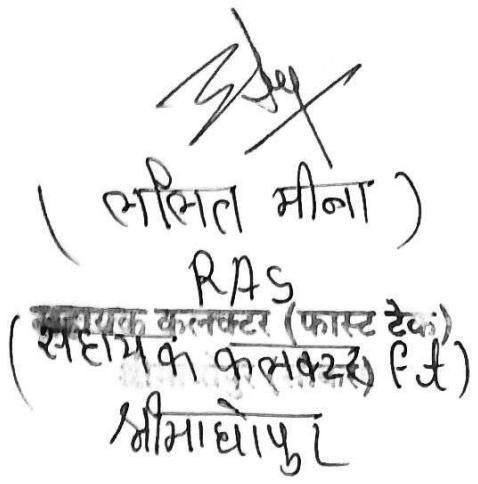 ( ललित मीना )
RAS
सहायक कलक्टर (फास्ट ट्रेक)
( सहायक कलक्टर F.t )
श्रीमाधोपुर